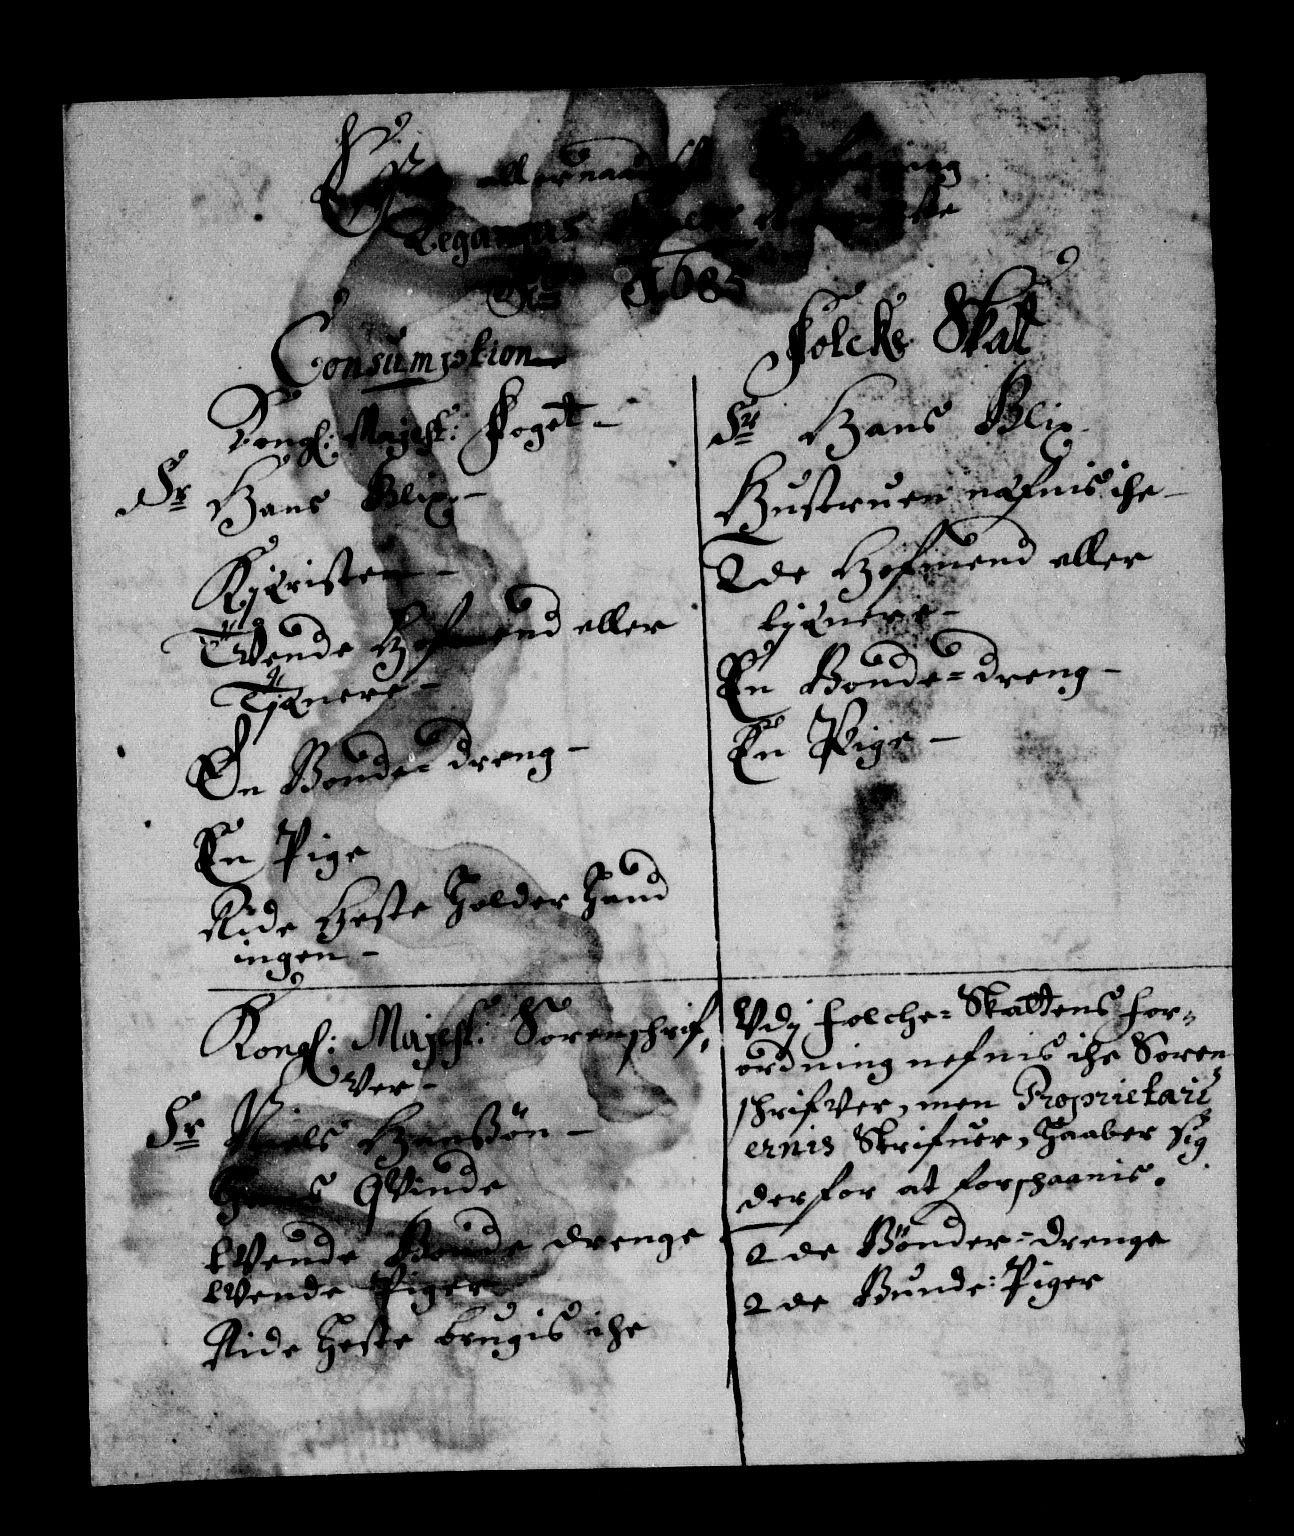 allernaadigste
Ao 1685
Consumption
Kongl: Majest: Foget -
Sr Hans Blix -
Kjæristen -
Tvende Hofmend eller
Tjænere -
En Bonde-dreng -
En Pige
Ride Heste holder hand
ingen -
Kongl: Majest: Sorenschrif,
ver -
Sr Niels Hanssøn -
Hans Qvinde
tvende Bonde drenge
tvende Piger
Ride heste brugis iche
Folcke Skat
Sr Hans Blix
Hustruen næfnis iche -
2de Hofmend eller
tjænere -
En Bonde=dreng -
En Pige -
Vdj Folche=Skattens For=
ordning nefnis iche Soren
schrifver, men Proprietari
ernis Skrifuer, haaber sig
derfor at forschaanis.
2de Bønder=drenge
2de Bunde:Piger